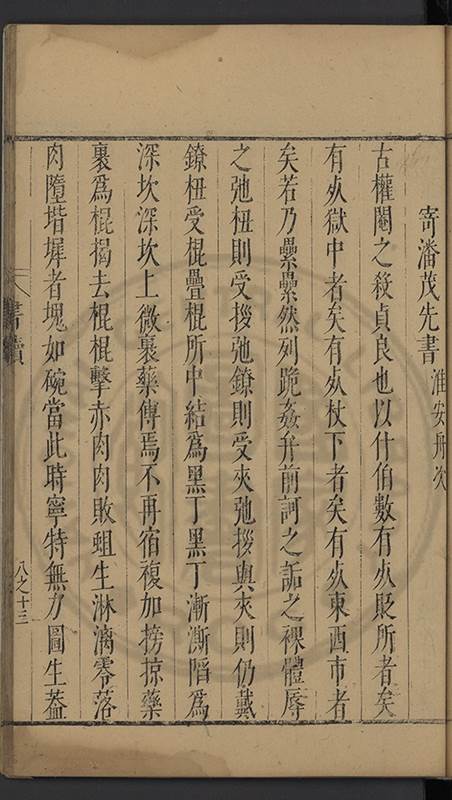 寄潘茂先書 淮安舟次
古權閹之殺貞良也以什伯數有㱙貶所者矣
有㱙獄中者矣有㱙杖下者矣有㱙東西市者
矣若乃纍纍然列跪姦弁前訶之詬之裸體辱
之弛杻則受拶弛鐐則受夾弛拶與夾則仍戴
鐐杻受棍疊棍所中結爲黑丁黑丁漸澌陷爲
深坎深坎上微裹藥傅焉不再宿複加搒掠藥
裹爲棍揭去棍棍擊赤肉肉敗蛆生淋漓零落
肉墮堦墀者塊如碗當此時寧特無力圖生葢
書牘
八之十三